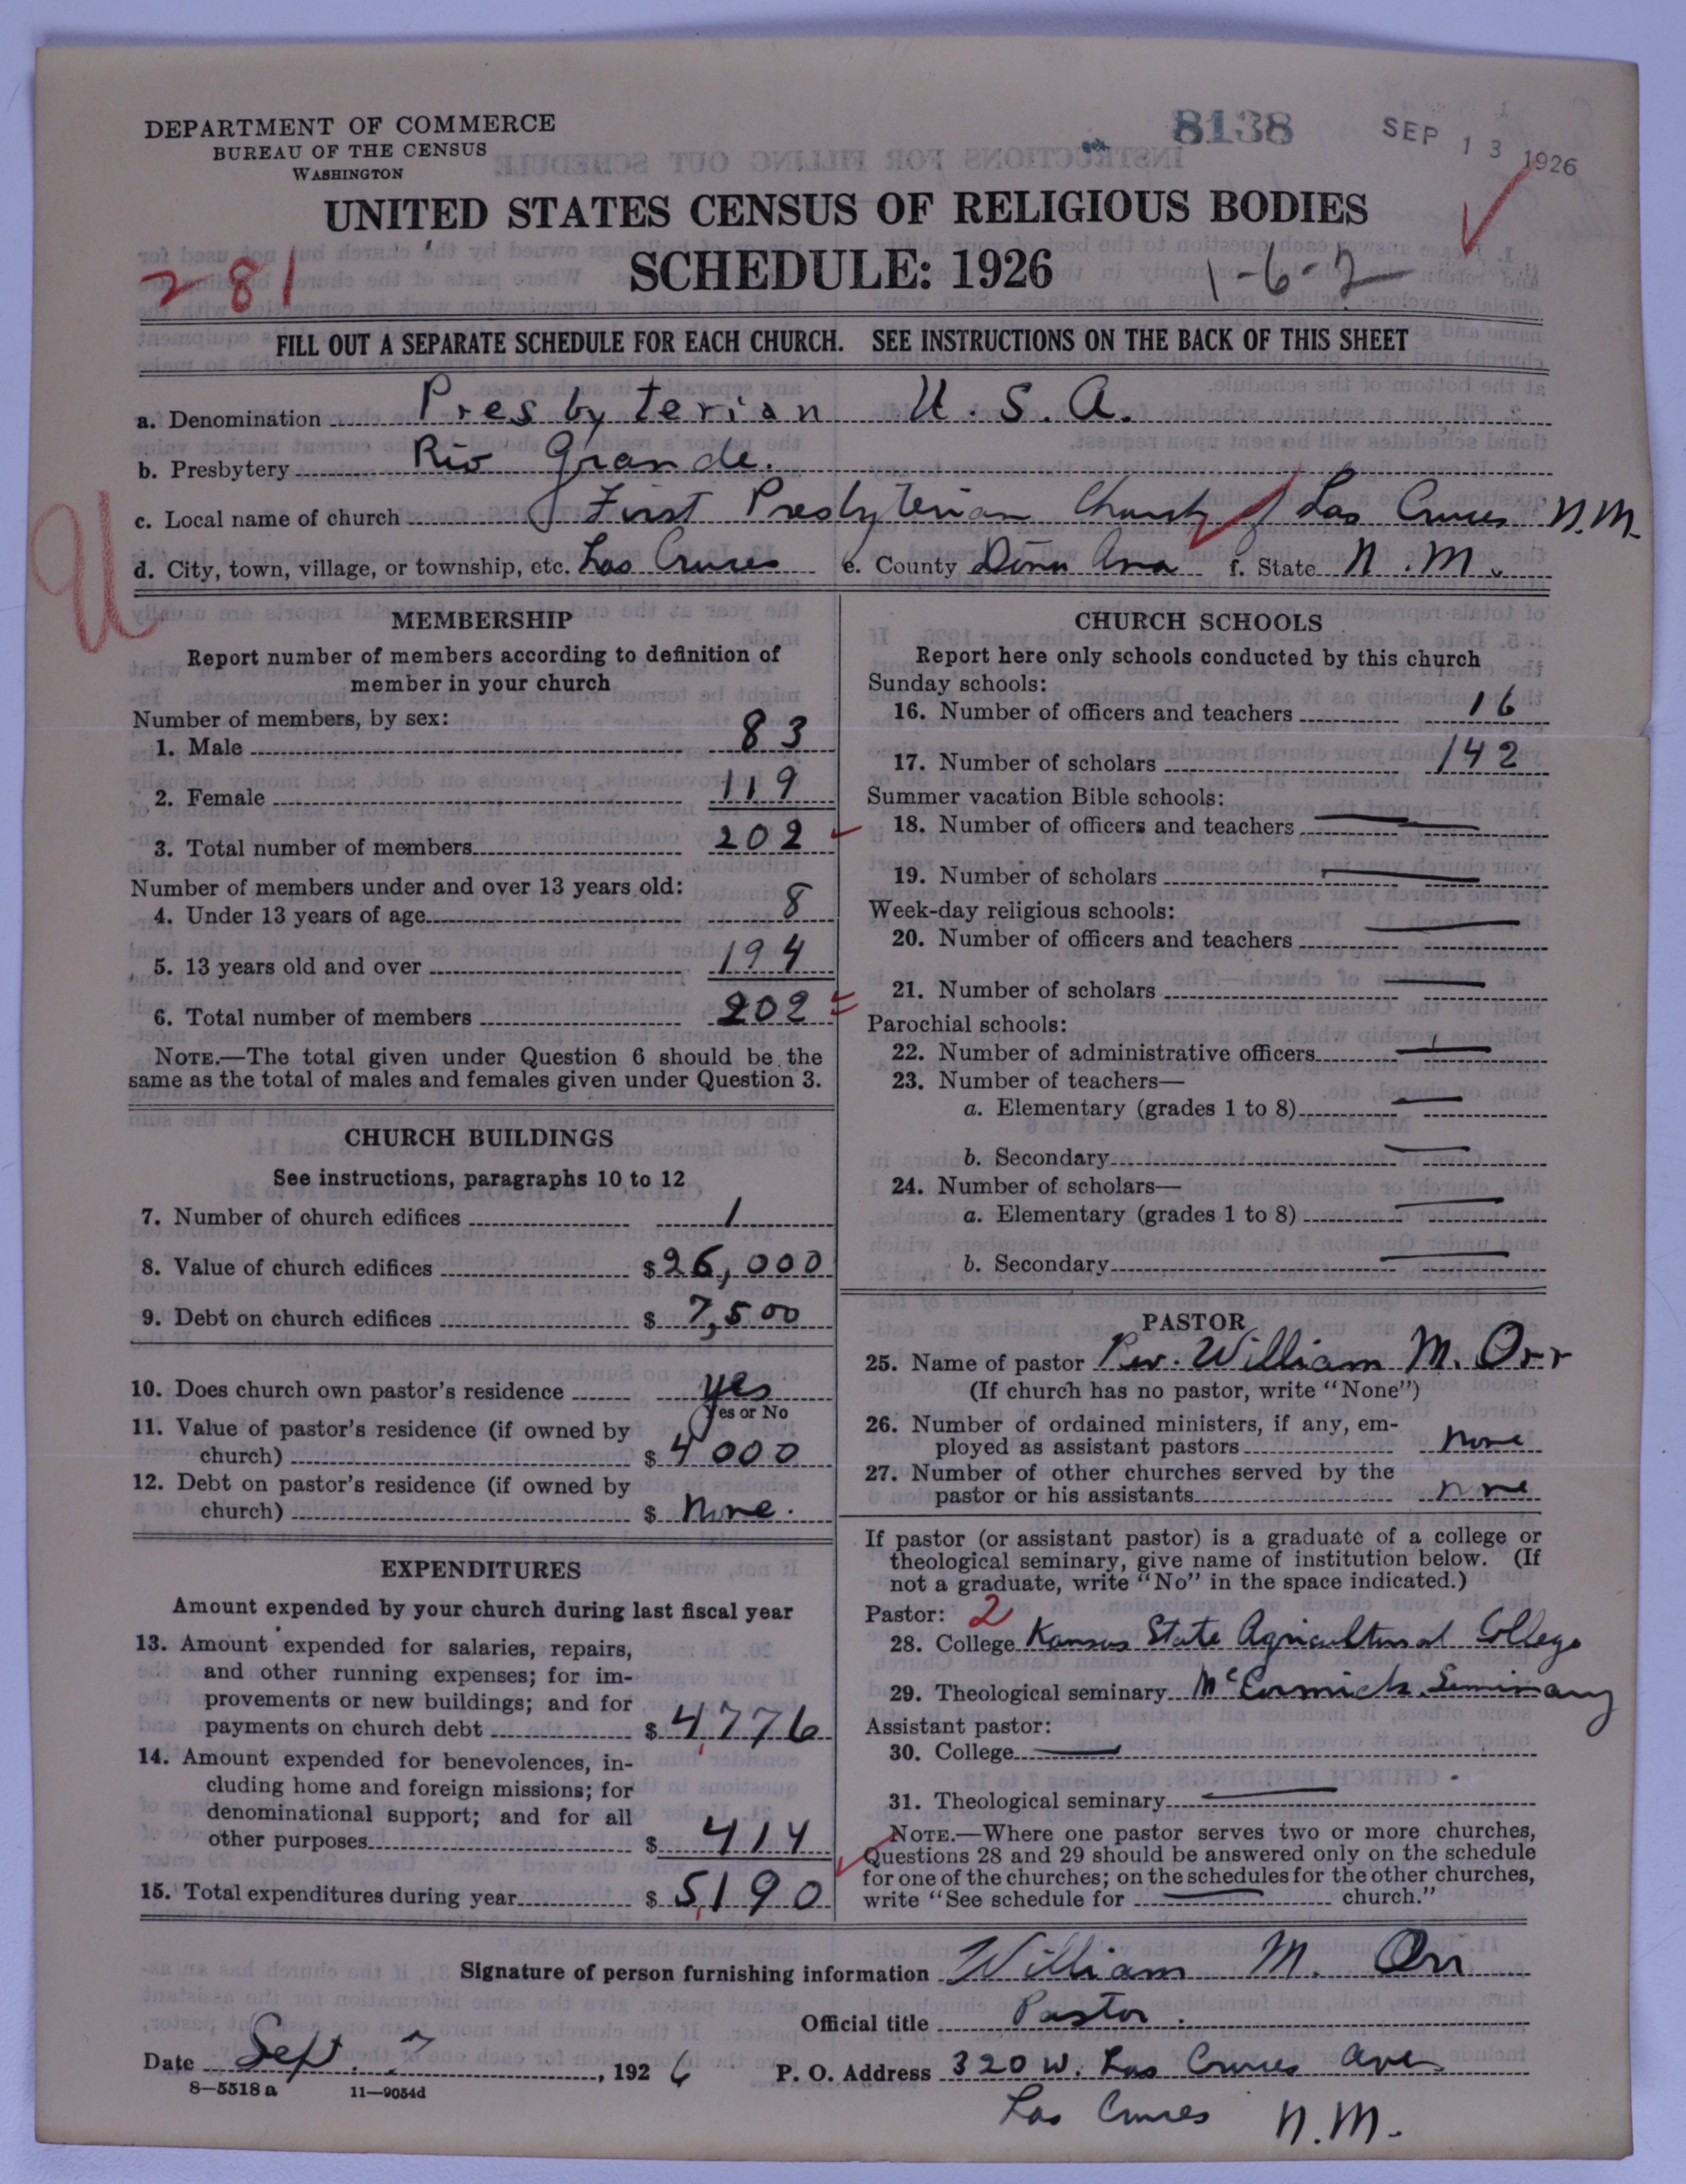 DEPARTMENT OF COMMERCE
BUREAU OF THE CENSUS
WASHINGTON
8138
SEP 13 1926
UNITED STATES CENSUS OF RELIGIOUS BODIES
281
SCHEDULE: 1926
1-6-2
FILL OUT A SEPARATE SCHEDULE FOR EACH CHURCH. SEE INSTRUCTIONS ON THE BACK OF THIS SHEET
a. Denomination Presbyterian U.S.A.
b. Presbytery Rio Grande.
c. Local name of church First Presbyterian Church of Las Cruces N.M.
d. City, town, village, or township, etc. Las Cruces e. County Dona Ana f. State N.M.
U
MEMBERSHIP
Report number of members according to definition of
member in your church
Number of members, by sex:
1. Male 83
2. Female 119
3. Total number of members 202
Number of members under and over 13 years old:
4. Under 13 years of age 8
5. 13 years old and over 194
6. Total number of members 202
NOTE.—The total given under Question 6 should be the
same as the total of males and females given under Question 3.
CHURCH BUILDINGS
See instructions, paragraphs 10 to 12
7. Number of church edifices 1
8. Value of church edifices $26,000
9. Debt on church edifices $ 7,500
10. Does church own pastor's residence yes
Yes or No
11. Value of pastor's residence (if owned by
church) $ 4000
12. Debt on pastor's residence (if owned by
church) $ None.
EXPENDITURES
Amount expended by your church during last fiscal year
13. Amount expended for salaries, repairs,
and other running expenses; for im-
provements or new buildings; and for
payments on church debt $ 4,776
14. Amount expended for benevolences, in-
cluding home and foreign missions; for
denominational support; and for all
other purposes $ 414
15. Total expenditures during year $ 5,190
CHURCH SCHOOLS
Report here only schools conducted by this church
Sunday schools:
16. Number of officers and teachers 16
17. Number of scholars 142
Summer vacation Bible schools:
18. Number of officers and teachers —
19. Number of scholars —
Week-day religious schools:
20. Number of officers and teachers —
21. Number of scholars —
Parochial schools:
22. Number of administrative officers —
23. Number of teachers—
a. Elementary (grades 1 to 8) —
b. Secondary —
24. Number of scholars—
a. Elementary (grades 1 to 8) —
b. Secondary —
PASTOR
25. Name of pastor Rev. William M. Orr
(If church has no pastor, write "None")
26. Number of ordained ministers, if any, em-
ployed as assistant pastors None
27. Number of other churches served by the
pastor or his assistants none
If pastor (or assistant pastor) is a graduate of a college or
theological seminary, give name of institution below. (If
not a graduate, write "No" in the space indicated.)
Pastor: 2
28. College Kansas State Agricultural College
29. Theological seminary McCormick Seminary
Assistant pastor:
30. College —
31. Theological seminary —
NOTE.—Where one pastor serves two or more churches,
Questions 28 and 29 should be answered only on the schedule
for one of the churches; on the schedules for the other churches,
write "See schedule for — church."
Signature of person furnishing information William M. Orr
Official title Pastor.
Date Sept. 7, 1926 P. O. Address 320 W. Las Cruces Ave
8—5518 a 11—9054d
Las Cruces N.M.